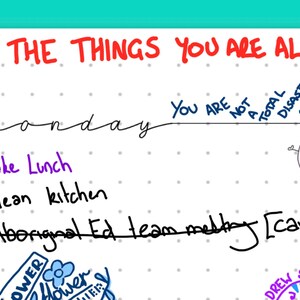 THE THINGS YOU ARE AL
YOU ARE NOT A TOTAL DISAST
onday
ke Lunch
ean kitchen
boriginal Ed team meeting [ca
FLOWER
flower
DREW